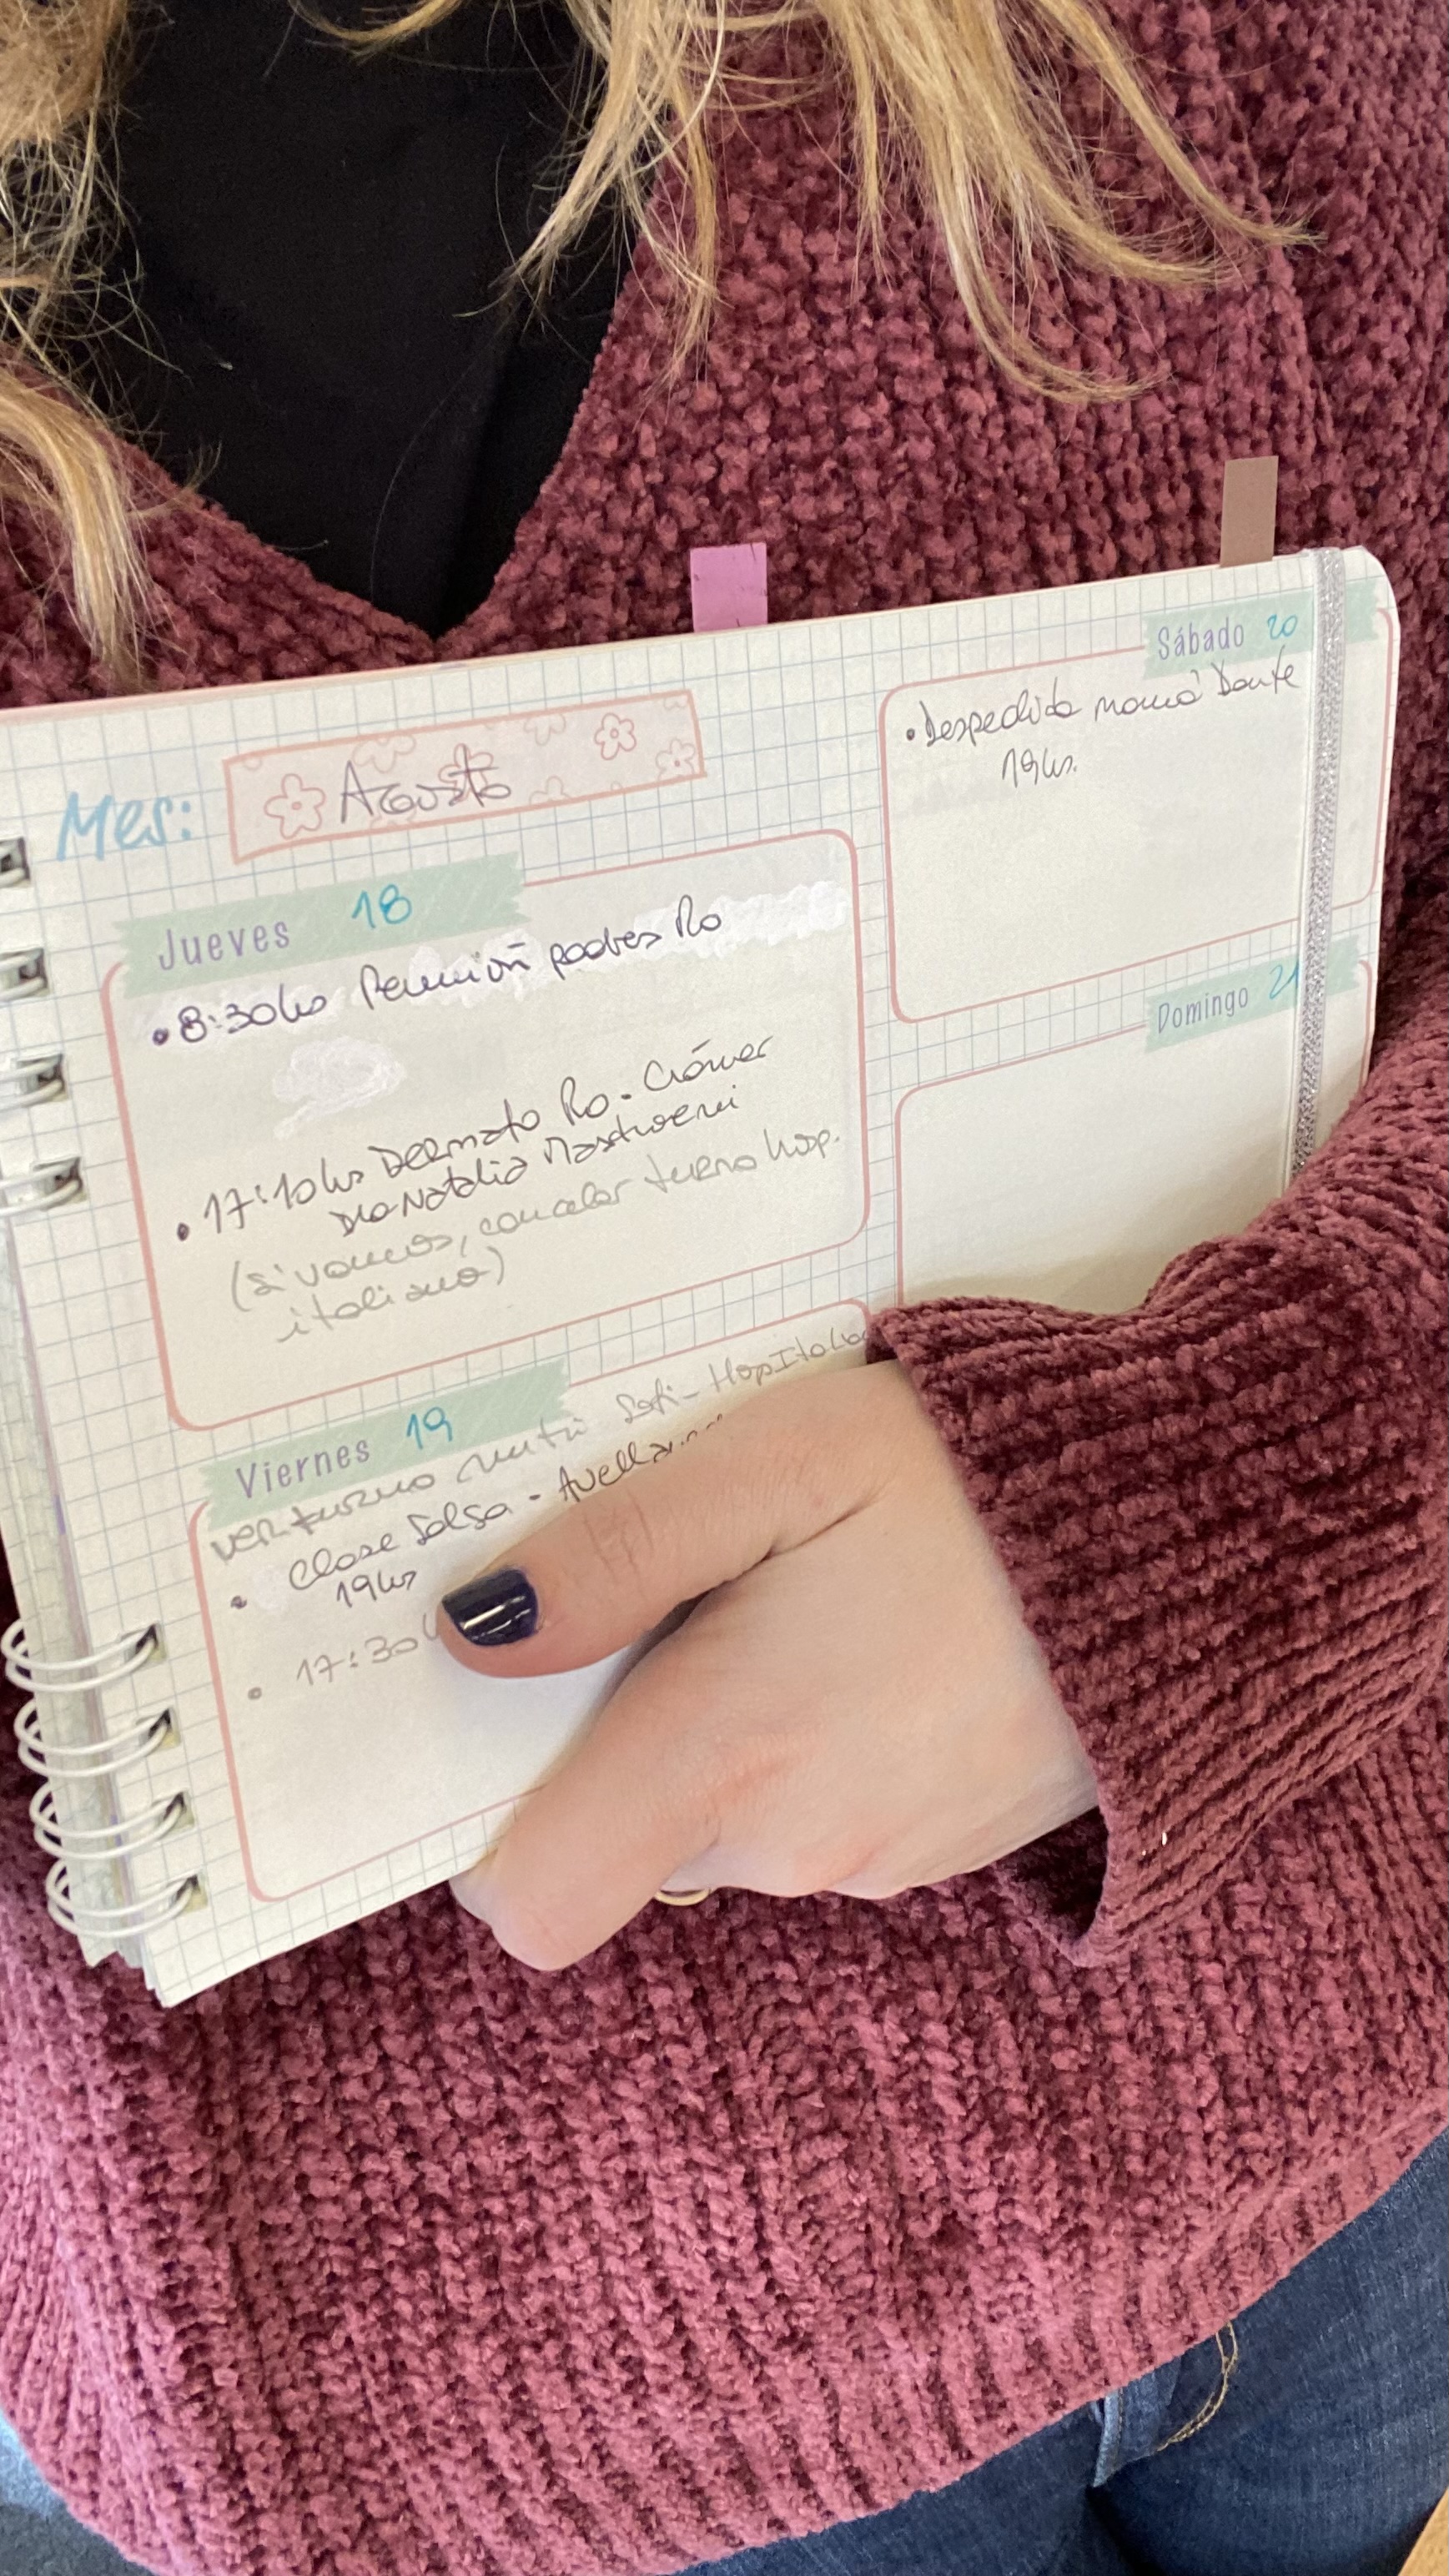 Mes: Agosto
Jueves 18
• 8:30hs Reunión padres Ro
• 17:10hs Dermato Ro. Crámer
Dra Natalia
(si vamos, cancelar turno hosp.
italiano)
Viernes 19
ver turno nutri Sofi - Hosp Italia
• Clase Salsa - Avella
19hs
• 17:30
Sábado 20
• Despedida mamá Dante
19hs.
Domingo 21